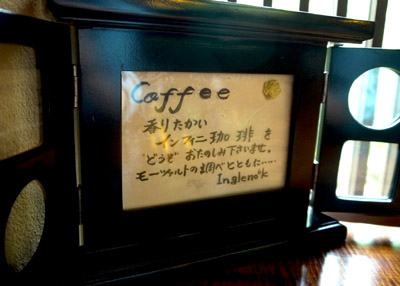 Coffee
香りたかい
インフィニ珈琲を
どうぞ おたのしみ下さいませ。
モーツァルトの調べとともに.....
Inglenook